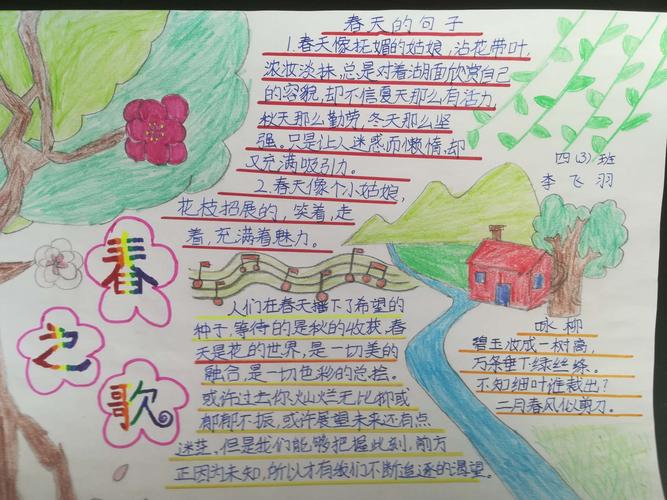 春天的句子
1.春天像抚媚的姑娘,沾花带叶,
浓妆淡抹,总是对着湖面欣赏自己
的容貌,却不信夏天那么有活力,
秋天那么勤劳,冬天那么坚
强。只是让人迷惑而懒惰,却
又充满吸引力。
2.春天像个小姑娘,
花枝招展的,笑着,走
着,充满着魅力。
四(3)班
李飞羽
春之歌
人们在春天播下了希望的
种子,等待的是秋的收获。春
天是花的世界,是一切美的
融合,是一切色彩的总
或许过去你灿烂无比抑或
郁郁不振,或许展望未来还有点
迷茫,但是我们能够把握此刻,前方
正因为未知,所以才有我们不断追逐的渴望。
咏柳
碧玉妆成一树高,
万条垂下绿丝绦。
不知细叶谁裁出?
二月春风似剪刀。